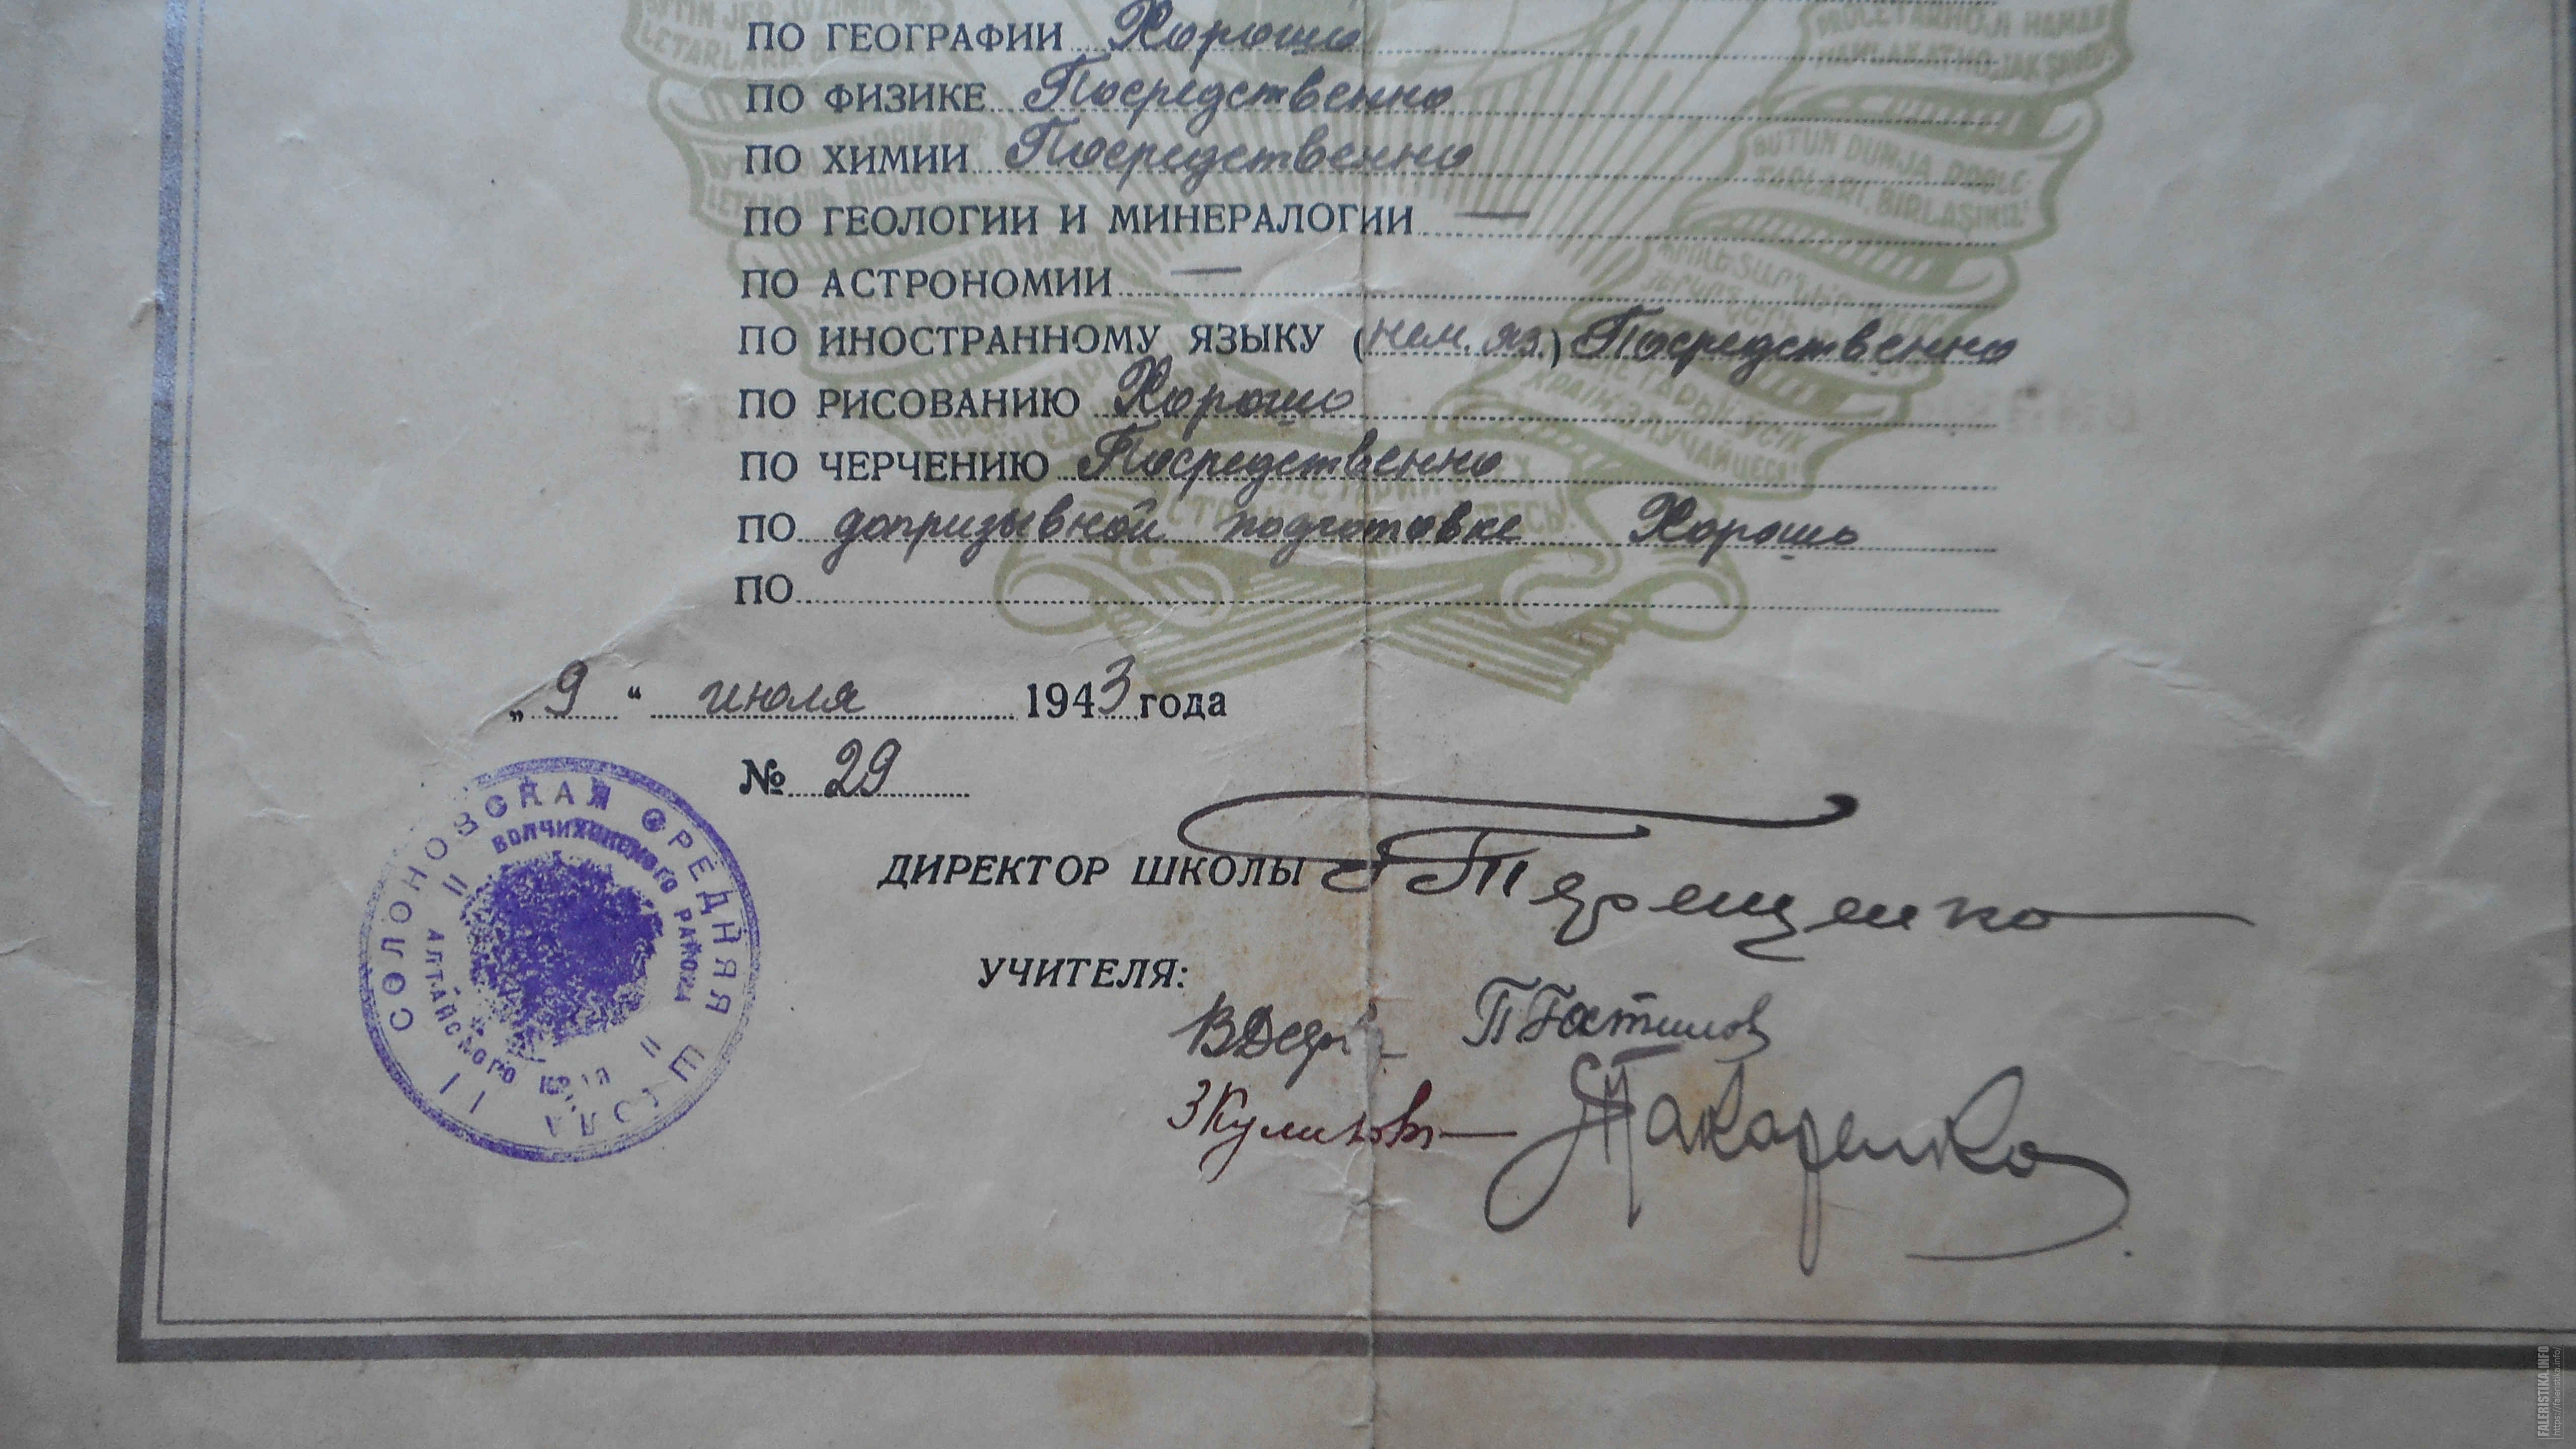 ПО ГЕОГРАФИИ Хорошо
ПО ФИЗИКЕ Посредственно
ПО ХИМИИ Посредственно
ПО ГЕОЛОГИИ И МИНЕРАЛОГИИ —
ПО АСТРОНОМИИ —
ПО ИНОСТРАННОМУ ЯЗЫКУ (нем. яз.) Посредственно
ПО РИСОВАНИЮ Хорошо
ПО ЧЕРЧЕНИЮ Посредственно
ПО допризывной подготовке Хорошо
ПО
„9“ июля 1943 года
№ 29
СОЛОНОВСКАЯ СРЕДНЯЯ ШКОЛА
ВОЛЧИХИНСКОГО РАЙОНА
АЛТАЙСКОГО КРАЯ
ДИРЕКТОР ШКОЛЫ Терещенко
УЧИТЕЛЯ:
З Куликова
Макаренко
BUTUN DUNJA PROLE-
TARLARI, BIRLAŞINIZ!
FALERISTIKA.INFO
https://faleristika.info/